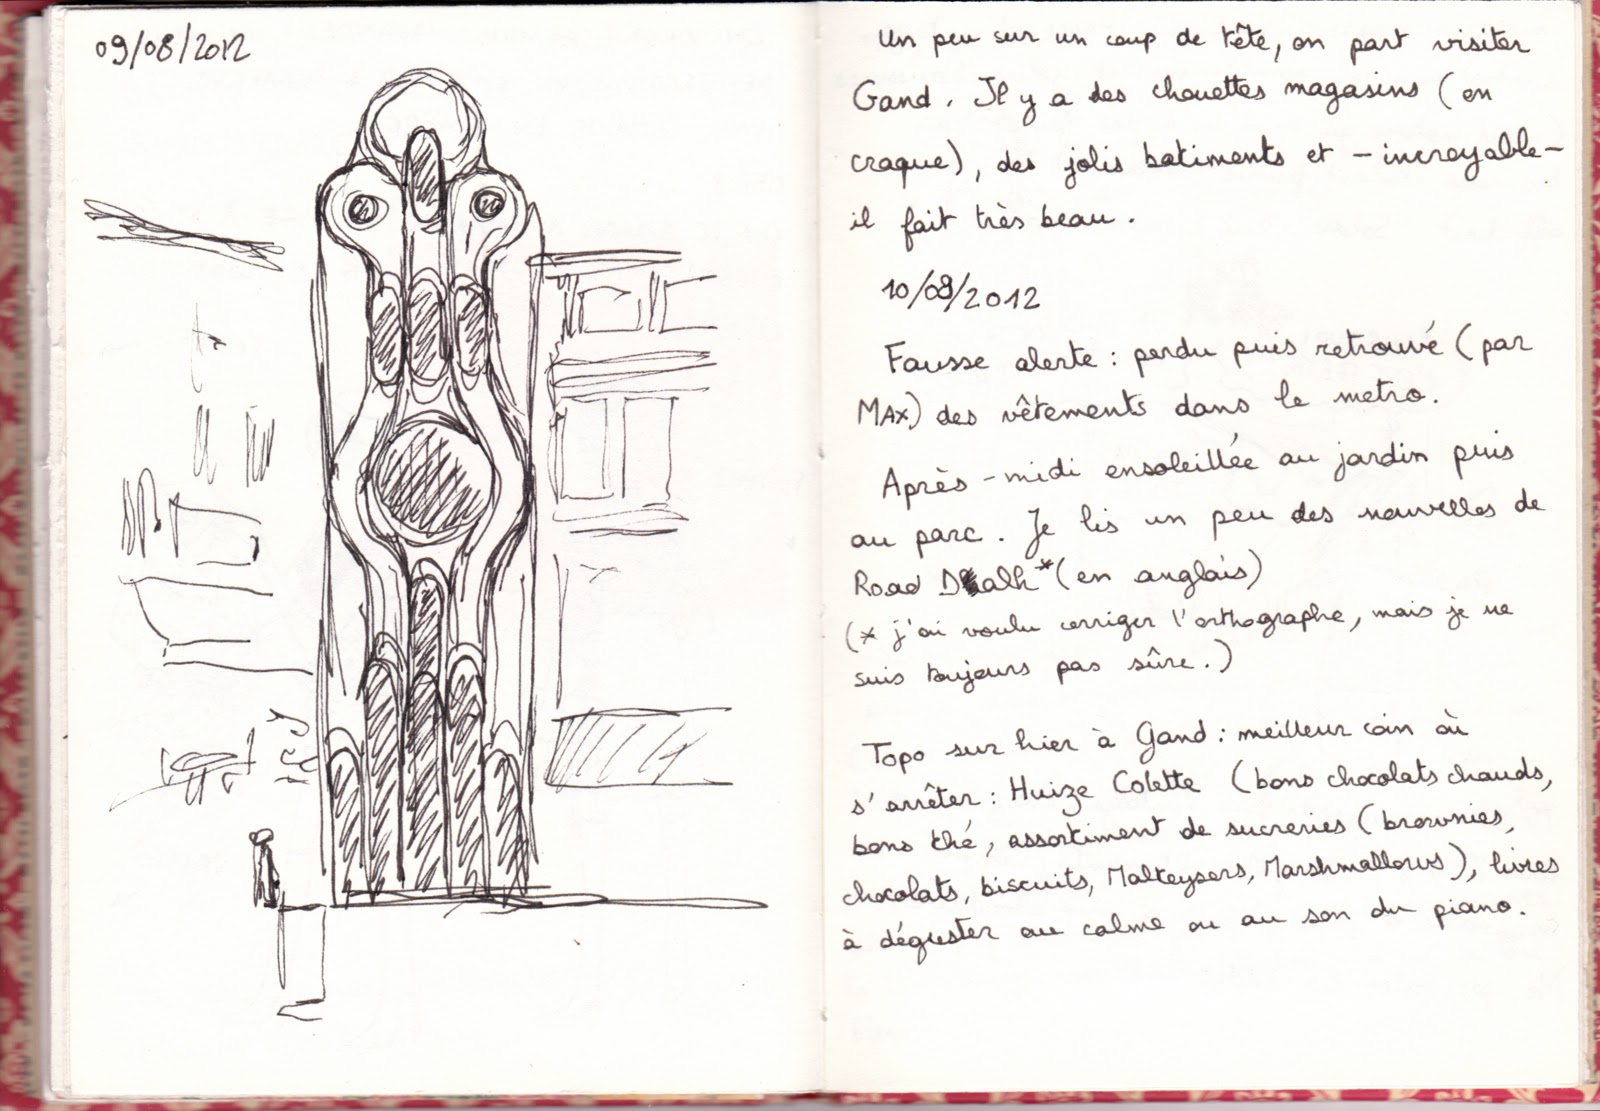 09/08/2012
Un peu sur un coup de tête, on part visiter
Gand. Il y a des chouettes magasins (on
craque), des jolis batiments et – incroyable –
il fait très beau.
10/08/2012
Fausse alerte : perdu puis retrouvé (par
MAX) des vêtements dans le metro.
Après-midi ensoleillée au jardin puis
au parc. Je lis un peu des nouvelles de
Road Dhalh* (en anglais)
(* j'ai voulu corriger l'orthographe, mais je ne
suis toujours pas sûre.)
Topo sur hier à Gand : meilleur coin où
s'arrêter : Huize Colette (bons chocolats chauds,
bons thé, assortiment de sucreries (brownies,
chocolats, biscuits, Malteysers, Marshmallows), livres
à déguster au calme ou au son du piano.